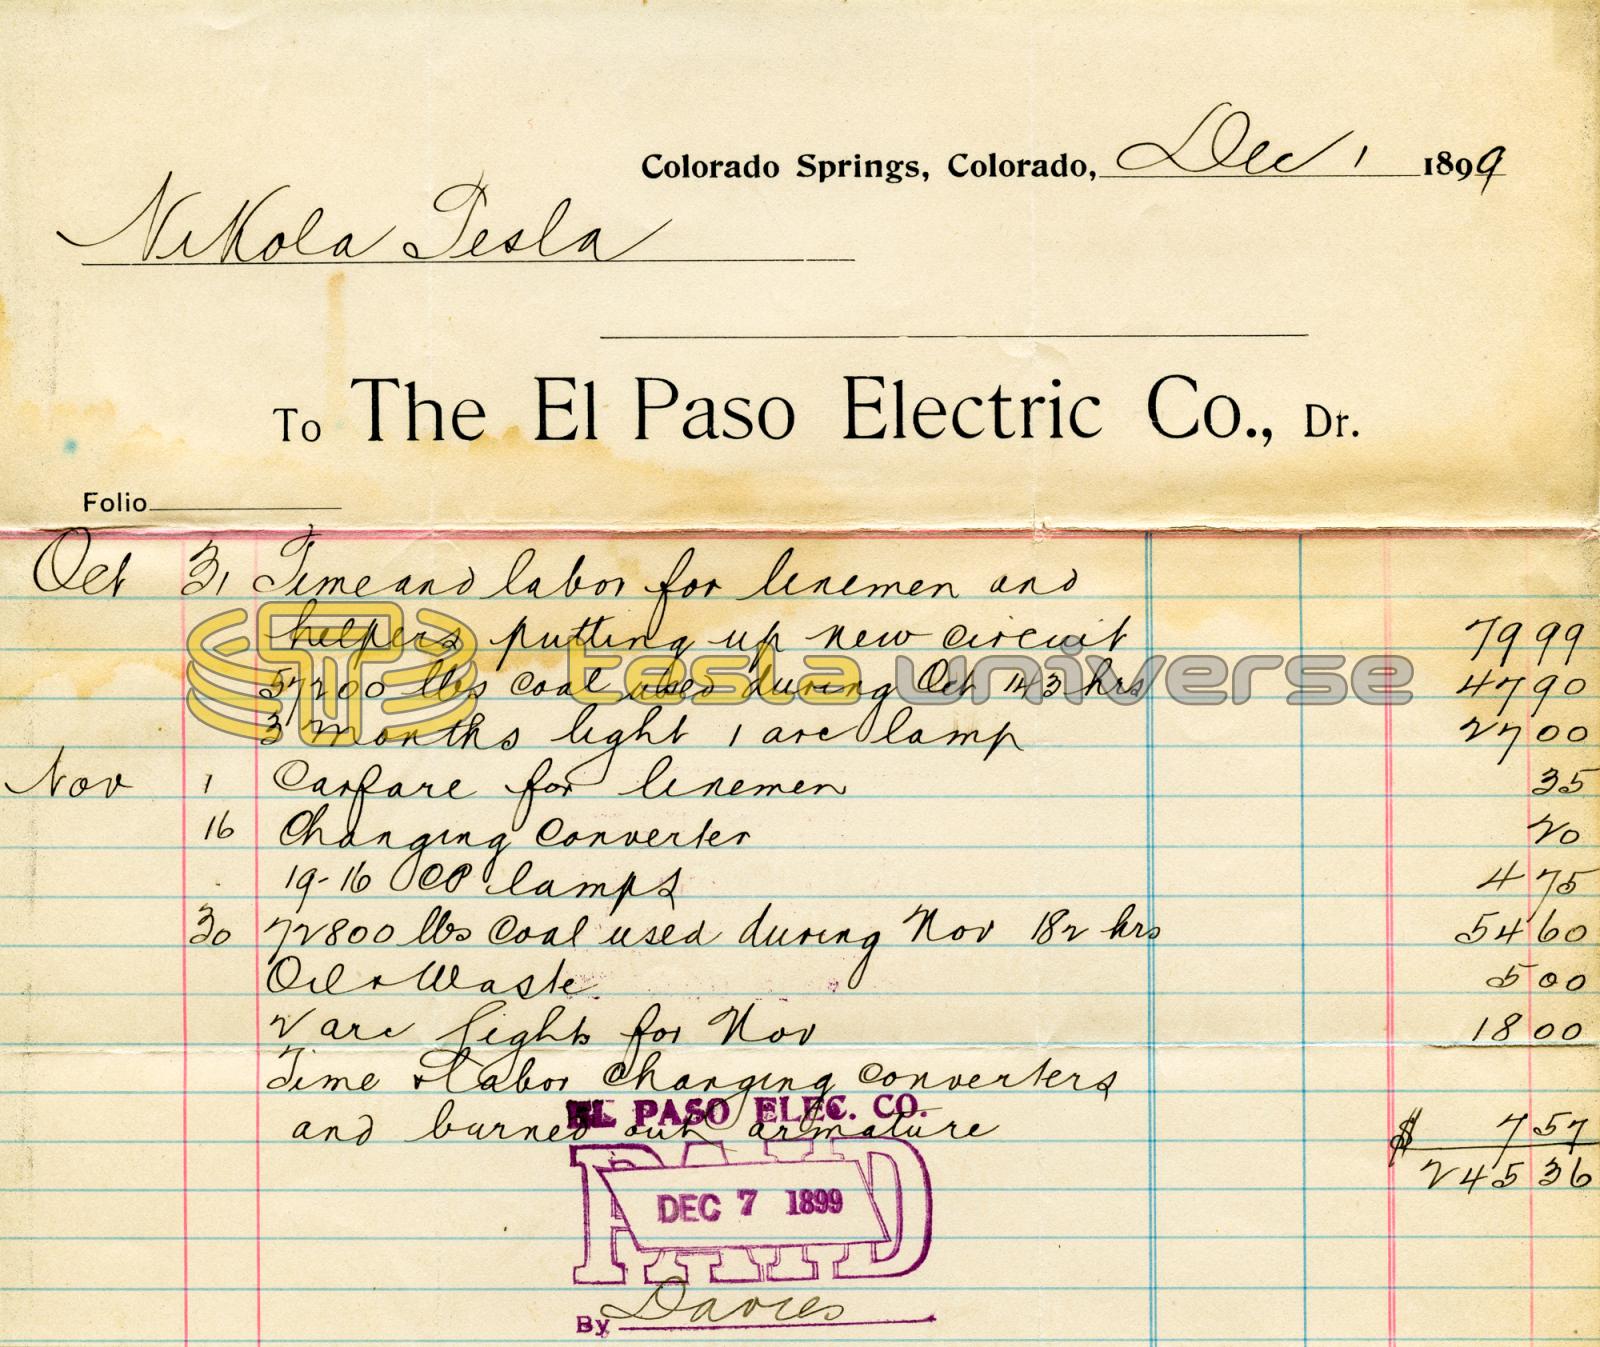 Colorado Springs, Colorado, Dec 1 1899
Nikola Tesla
To The El Paso Electric Co., Dr.
Folio
Oct 31 Time and labor for linemen and
helpers putting up new circuit 79 99
tesla universe
57200 lbs coal used during Oct 143 hrs 47 90
3 months light 1 arc lamp 27 00
Nov 1 Carfare for linemen 35
16 Changing converter 20
19-16 CP lamps 4 75
30 72800 lbs coal used during Nov 182 hrs 54 60
Oil & Waste 5 00
2 arc lights for Nov 18 00
Time & labor changing converters
and burned out armature 7 57
$ 245 36
EL PASO ELEC. CO.
PAID
DEC 7 1899
By Davies